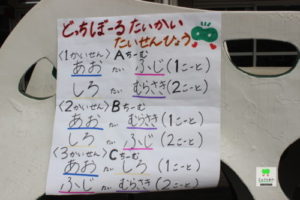 どっちぼーるたいかい
たいせんひょう
〈1かいせん〉Aちーむ
あお たい ふじ(1こーと)
しろ たい むらさき(2こーと)
〈2かいせん〉Bちーむ
あお たい むらさき(1こーと)
しろ たい ふじ(2こーと)
〈3かいせん〉Cちーむ
あお たい しろ(1こーと)
ふじ たい むらさき(2こーと)